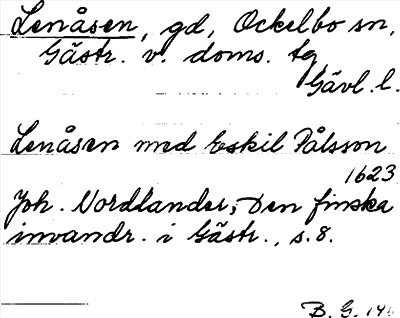 Lenåsen, gd, Ockelbo sn,
Gästr. v. doms. tg,
Gävl. l.
Lenåsen med Eskil Pålsson
1623
Joh. Nordlander, Den finska
invandr. i Gästr., s. 8.
B. G.